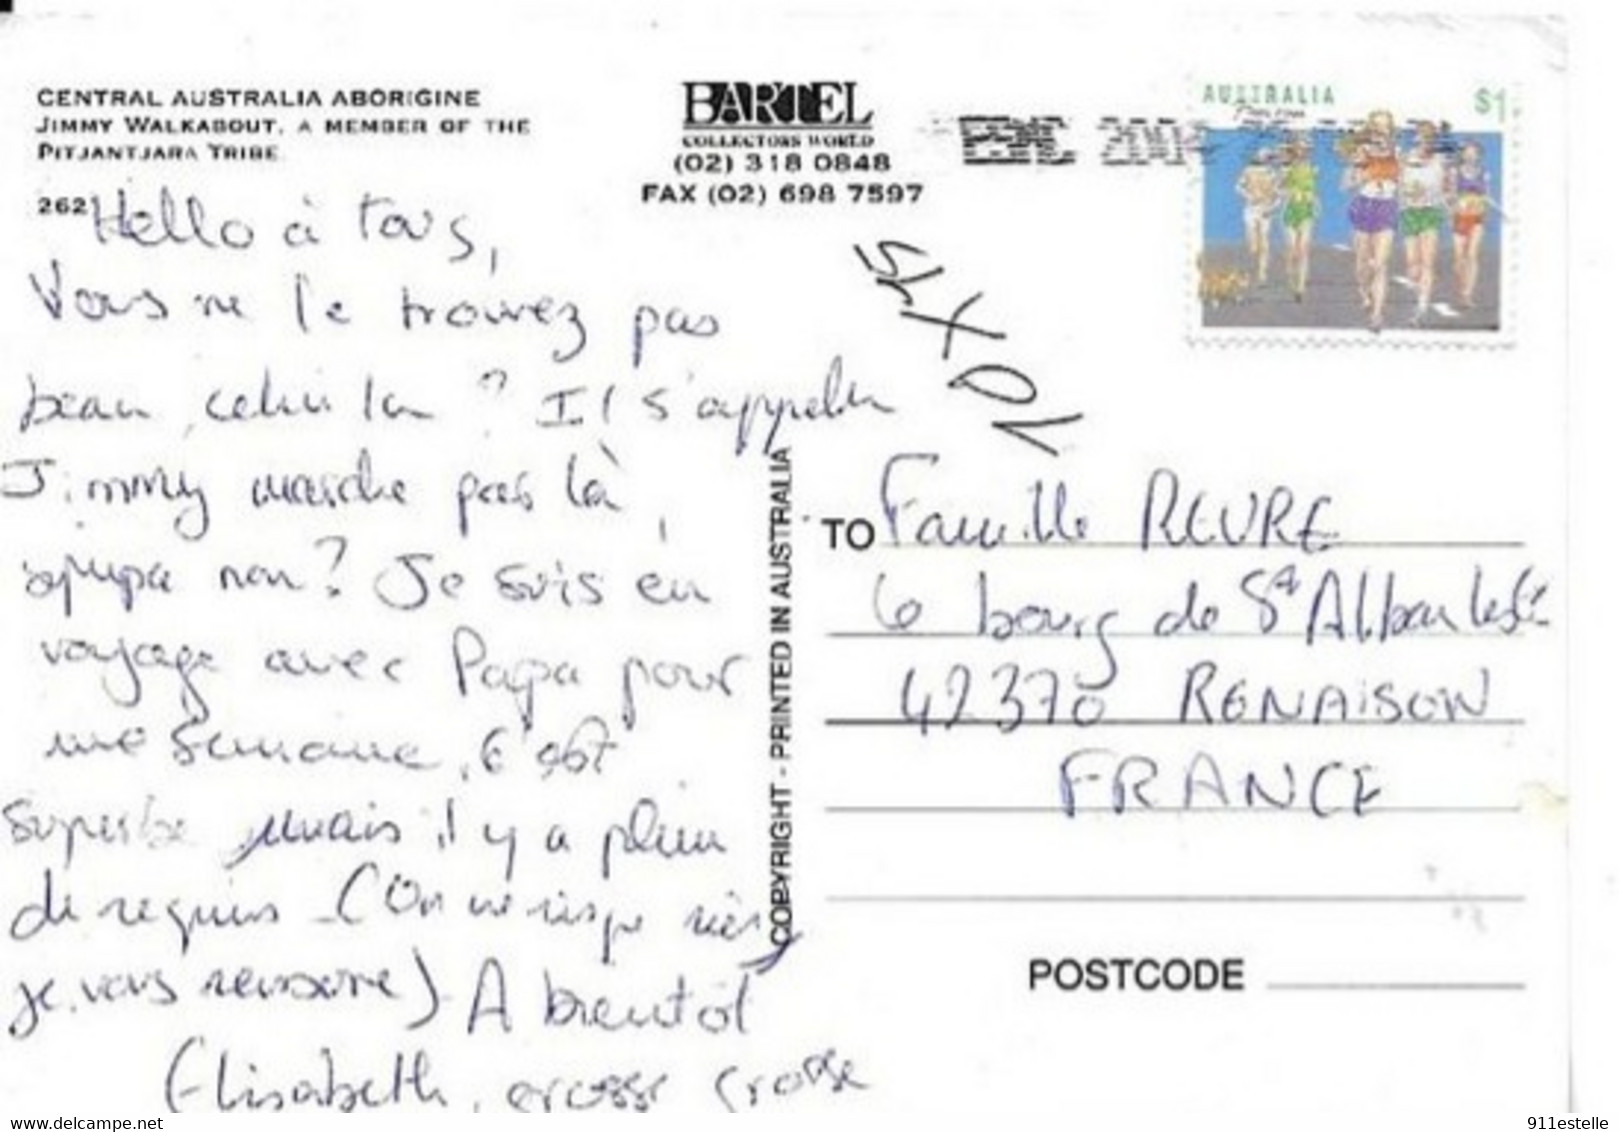 CENTRAL AUSTRALIA ABORIGINE
JIMMY WALKABOUT, A MEMBER OF THE
PITJANTJARA TRIBE.
262
BARTEL
COLLECTORS WORLD
(02) 318 0848
FAX (02) 698 7597
AUSTRALIA $1
Hello à tous,
Vous ne le trouvez pas
beau, celui la ? Il s'appelle
Jimmy marche pas là,
sympa non? Je suis en
voyage avec Papa pour
une semaine, c'est
superbe mais il y a plein
de requins - (On ne risque rien,
je vous rassure). A bientôt
Elisabeth, grosse
COPYRIGHT - PRINTED IN AUSTRALIA
TO Famille REURE
le bourg de St Alban les
42370 RENAISON
FRANCE
POSTCODE
www.delcampe.net
911estelle